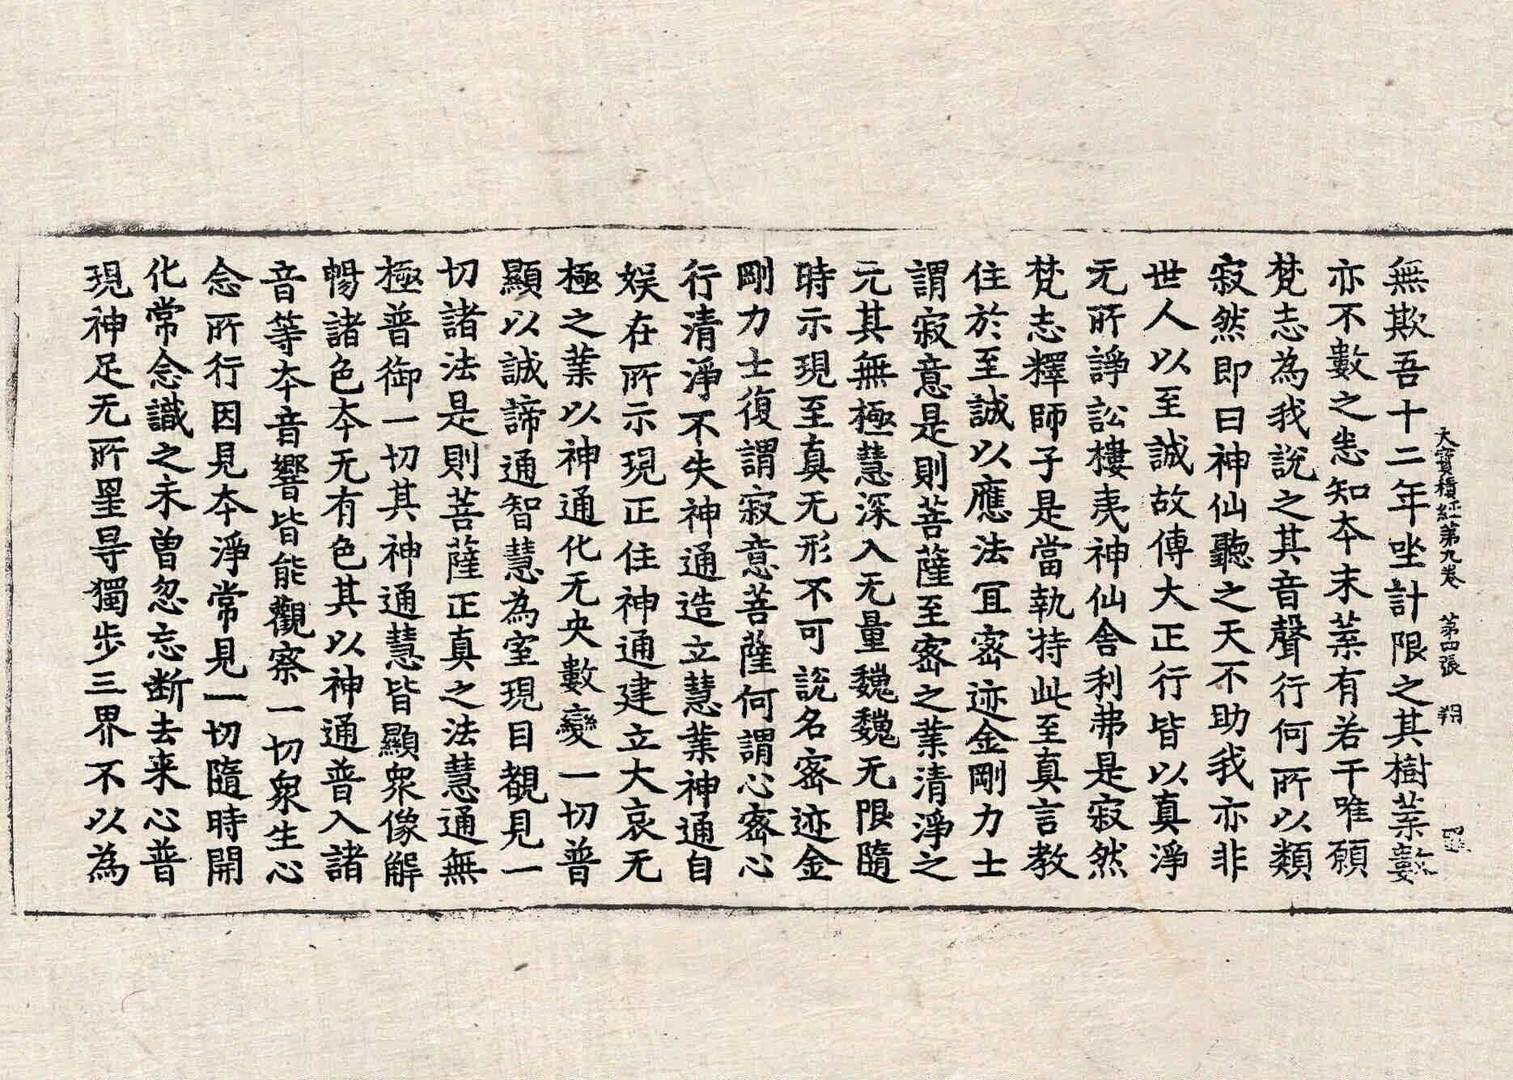 大寶積經第九卷 第四張 翔
無欺吾十二年坐計限之其樹葉數
亦不數之悉知本末葉有若干唯願
梵志為我說之其音聲行何所以類
寂然即曰神仙聽之天不助我亦非
世人以至誠故傳大正行皆以真淨
无所諍訟樓夷神仙舍利弗是寂然
梵志釋師子是當執持此至真言教
住於至誠以應法冝宻迹金剛力士
謂寂意是則菩薩至宻之業清淨之
元其無極慧深入无量巍巍无限隨
時示現至真无形不可說名宻迹金
剛力士復謂寂意菩薩何謂心宻心
行清淨不失神通造立慧業神通自
娛在所示現正住神通建立大哀无
極之業以神通化无央數變一切普
顯以誠諦通智慧為室現目覩見一
切諸法是則菩薩正真之法慧通無
極普御一切其神通慧皆顯衆像解
暢諸色本无有色其以神通普入諸
音等本音響皆能觀察一切衆生心
念所行因見本淨常見一切隨時開
化常念識之未曽忽忘斷去来心普
現神足无所罣㝵獨步三界不以為